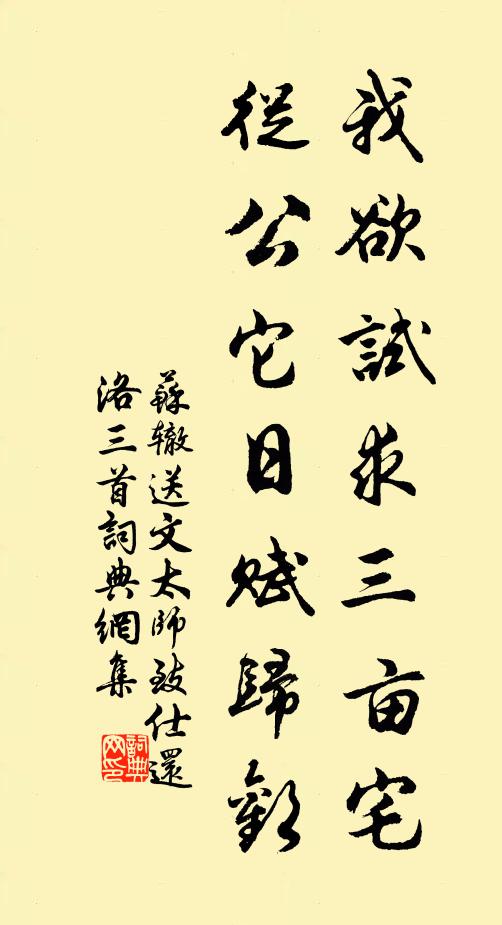 我欲試求三亩宅
從公它日賦歸
蘇辙送文太師致仕還
洛三首詞典網集
詞典
网印